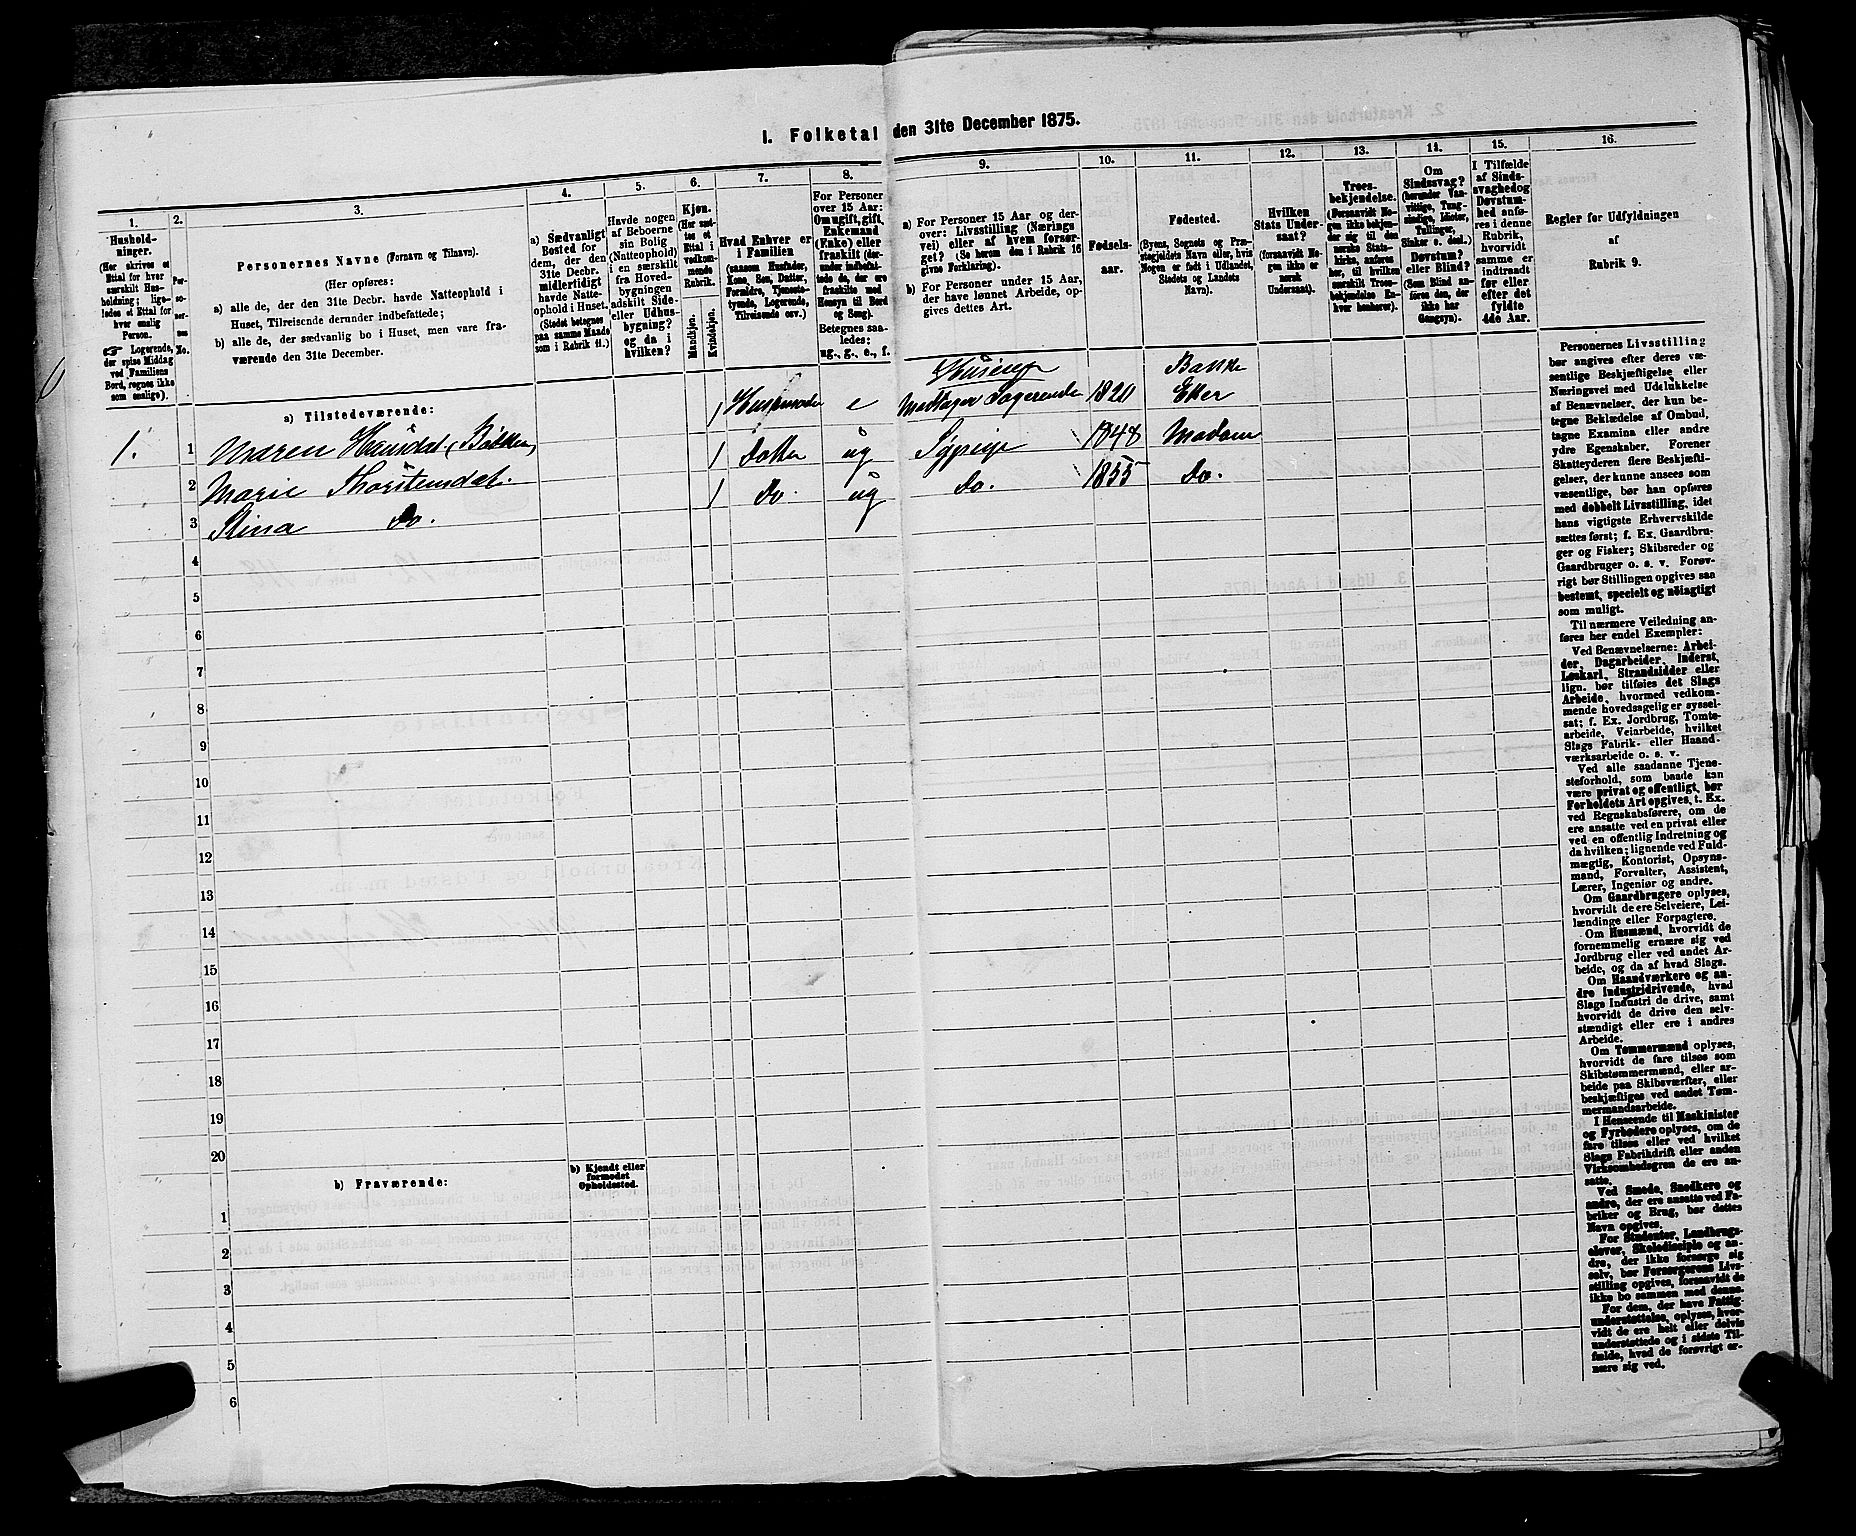 I. Folketal den 31te December 1875.
1.
Hushold-
ninger.
(Her skrives et
Ettal for hver
særskilt Hus-
holdning; lige-
ledes et Ettal for
hver enslig
Person.
☞ Logerende,
der spise Middag
ved Familiens
Bord, regnes ikke
som enslige).
2.
Per-
so-
ner-
nes
No.
3.
Personernes Navne (Fornavn og Tilnavn).
(Her opføres:
a) alle de, der den 31te Decbr. havde Natteophold i
Huset, Tilreisende derunder indbefattede;
b) alle de, der sædvanlig bo i Huset, men vare fra-
værende den 31te December.
4.
a) Sædvanligt
Bosted for
dem, der den
31te Decbr.
midlertidigt
havde Natte-
ophold i Huset.
(Stedet betegnes
paa samme Maade
som i Rubrik 11.)
5.
Havde nogen
af Beboerne
sin Bolig
(Natteophold)
i en særskilt
fra Hoved-
bygningen
adskilt Side-
eller Udhus-
bygning?
og da i
hvilken?
6.
Kjøn.
(Her sæt-
tes et
Ettal i
vedkom-
mende
Rubrik.
Mandkjøn.
Kvindekjøn.
7.
Hvad Enhver er
i Familien
(saasom Husfader,
Kone, Søn, Datter,
Forældre, Tjeneste-
tyende, Logerende,
Tilreisende osv.)
8.
For Personer
over 15 Aar:
Om ugift, gift,
Enkemand
(Enke) eller
fraskilt (der-
under indbefat-
tede de, der ere
fraskilte med
Hensyn til Bord
og Seng).
Betegnes saa-
ledes:
ug., g., e., f.
9.
a) For Personer 15 Aar og der-
over: Livsstilling (Nærings
vei) eller af hvem forsør-
get? (Se herom den i Rubrik 16
givne Forklaring).
b) For Personer under 15 Aar,
der have lønnet Arbeide, op-
gives dettes Art.
10.
Fødsels-
aar.
11.
Fødested.
(Byens, Sognets og Præ-
stegjeldets Navn eller, hvis
Nogen er født i Udlandet,
Stedets og Landets
Navn).
12.
Hvilken
Stats Under-
saat?
(forsaavidt No-
gen ikke er
norsk
Undersaat).
13.
Troes-
bekjendelse.
(Forsaavidt No-
gen ikke bekjen-
der sig til den
norske Stats-
kirke, anføres
her, til hvilken
særskilt Troes-
bekjendelse En-
hver henhører).
14.
Om
Sindssvag?
(herunder Van-
vittige, Tung-
sindige, Idioter,
Tullinger,
Sinker o. desl.)
Døvstum?
eller Blind?
(Som Blind an-
føres den, der
ikke har
Gangsyn).
15.
I Tilfælde
af Sinds-
svaghed og
Døvstum-
hed anfø-
res i denne
Rubrik,
hvorvidt
samme er
indtraadt
før eller
efter det
fyldte
4de Aar.
16.
Regler for Udfyldningen
af
Rubrik 9.
a) Tilstedeværende:
1. 1 Maren Hamdal (Bakken) 1 e 1820 Eker
2 Marie Thorstensdat. 1 Datter ug Sypige 1848 Modum
3 Stina Do. 1 do. ug do. 1855 do.
4
5
6
7
8
9
10
11
12
13
14
15
16
17
18
19
20
b) Fraværende:
b) Kjendt eller
formodet
Opholdssted.
1
2
3
4
5
6
Personernes Livsstilling
bør angives efter deres væ-
sentlige Beskjæftigelse eller
Næringsvei med Udelukkelse
af Benævnelser, der kun be-
tegne Beklædelse af Ombud,
tagne Examina eller andre
ydre Egenskaber. Forener
Skatteyderen flere Beskjæfti-
gelser, der kunne ansees som
væsentlige, bør han opføres
med dobbelt Livsstilling, idet
hans vigtigste Erhvervskilde
sættes først; f. Ex. Gaardbru-
ger og Fisker; Skibsreder og
Gaardbruger o. s. v. Forøv-
rigt bør Stillingen opgives saa
bestemt, specielt og nöiagtigt
som muligt.
Til nærmere Veiledning an-
føres her endel Exempler:
Ved Benævnelserne: Arbei-
der, Dagarbeider, Inderst,
Løskarl, Strandsidder eller
lign. bør tilføies det Slags
Arbeide, hvormed vedkom-
mende hovedsagelig er syssel-
sat; f. Ex. Jordbrug, Tomte-
arbeide, Veiarbeide, hvilket
Slags Fabrik- eller Haand-
værksarbeide o. s. v.
Ved alle saadanne Tjene-
steforhold, som baade kan
være privat og offentligt, bør
Forholdets Art opgives, t. Ex.
ved Regnskabsførere, om de
ere ansatte ved en privat eller
ved en offentlig Indretning og
da hvilken; lignende ved Fuld-
mægtig, Kontorist, Opsyns-
mand, Forvalter, Assistent,
Lærer, Ingeniør og andre.
Om Gaardbrugere oplyses,
hvorvidt de ere Selveiere, Lei-
lændinge eller Forpagtere.
Om Husmænd, hvorvidt de
fornemmelig ernære sig ved
Jordbrug eller ved andet Ar-
beide, og da af hvad Slags.
Om Haandværkere og an-
dre Industridrivende, hvad
Slags Industri de drive, samt
hvorvidt de drive den selv-
stændigt eller ere i andres
Arbeide.
Om Tømmermænd oplyses,
hvorvidt de fare tilsøs som
Skibstømmermænd, eller ar-
beide paa Skibsværfter, eller
beskjæftiges ved andet Tøm-
mermandsarbeide.
I Henseende til Maskinister
og Fyrbødere oplyses, om de
fare tilsøs eller ved hvilket
Slags Fabrikdrift eller anden
Virksomhedsgren de ere an-
satte.
Ved Smede, Snedkere og
andre, der ere ansatte ved Fa-
briker og Brug, bør dettes
Navn opgives.
For Studenter, Landbrugs-
elever, Skoledisciple og an-
dre, der ikke forsørge sig
selv, bør Forsørgerens Livs-
stilling opgives, forsaavidt de
ikke bo sammen med denne.
For dem, der have Fattig-
understøttelse, oplyses, hvor-
vidt de ere helt eller delvis
understøttede og i sidste Til-
fælde, hvad de forøvrigt er-
nære sig ved.